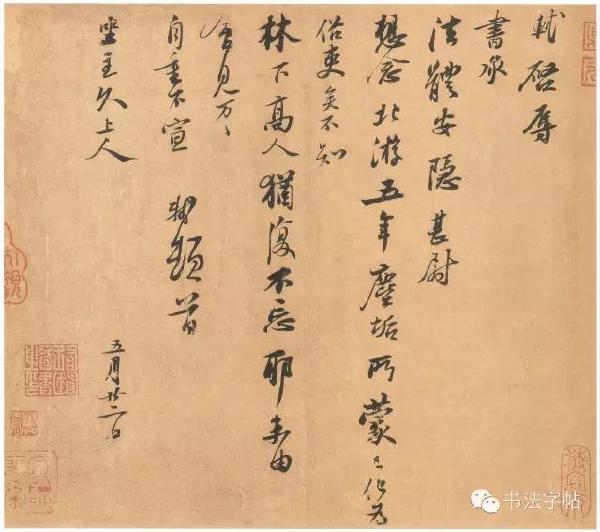 軾啓辱
書承
法體安隱甚尉
想念北游五年塵垢所蒙已化為
俗吏矣不知
林下高人猶復不忘耶未由
會見万〻
自重不宣 軾頓首
坐主久上人
五月廿二日
书法字帖